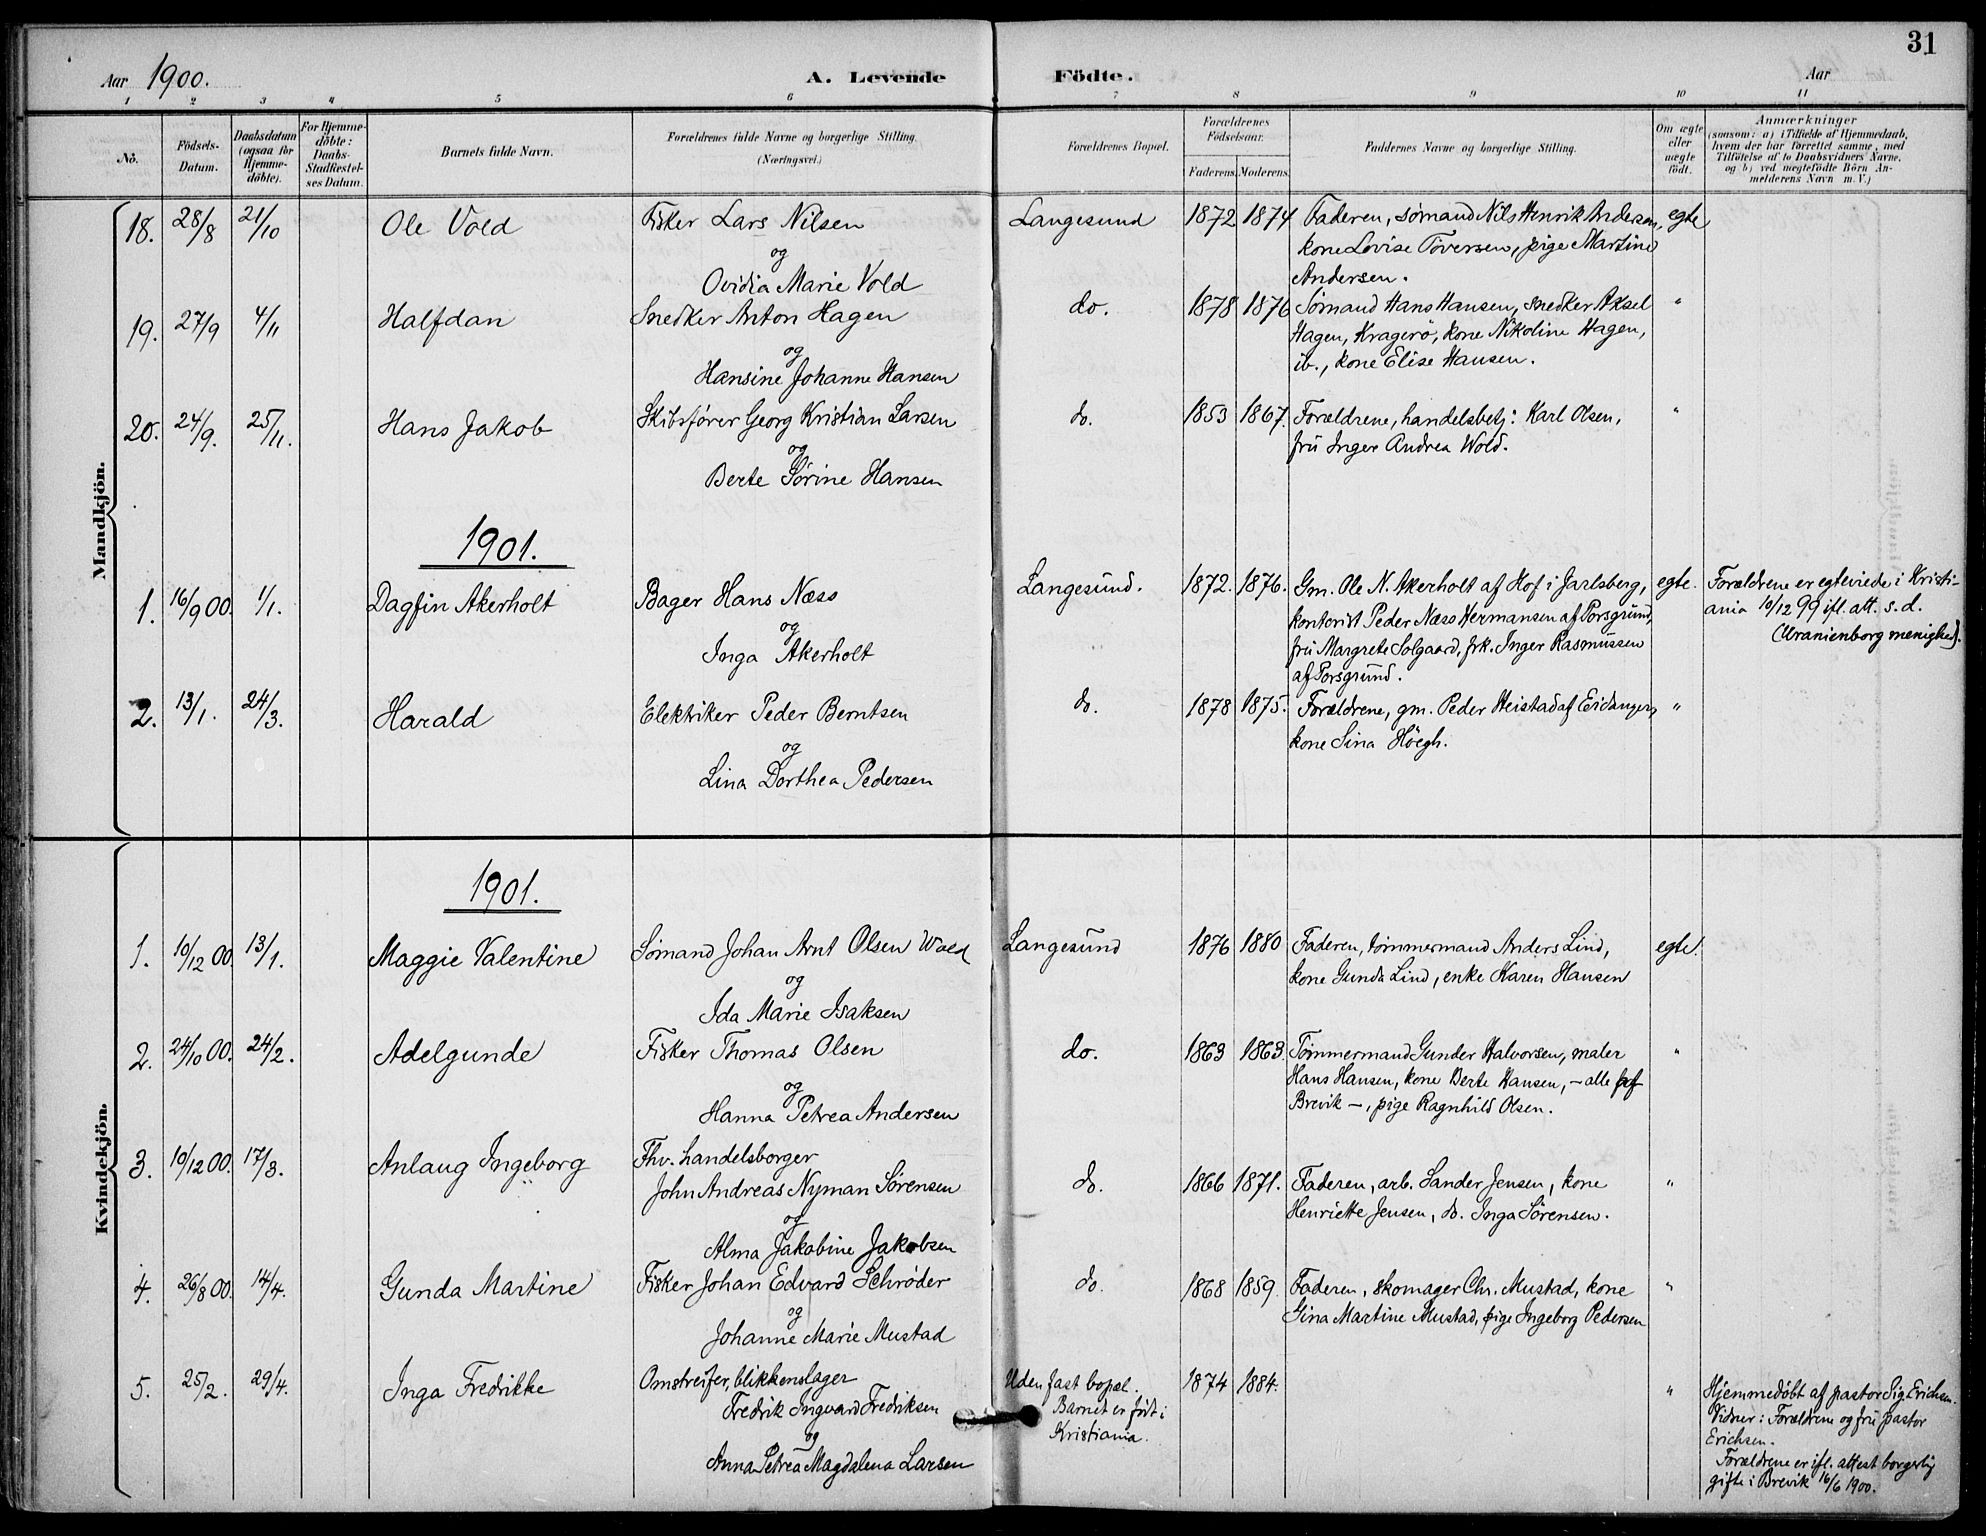 31
Aar 1900. A. Levende Födte. Aar
1 2 3 4 5 6 7 8 9 10 11
No. Födsels-Datum. Daabsdatum (ogsaa for Hjemme-döbte). For Hjemme-döbte: Daabs-Stadfæstel-ses Datum. Barnets fulde Navn. Forældrenes fulde Navne og borgerlige Stilling. (Næringsvei.) Forældrenes Bopæl. Forældrenes Födselsaar. Faderens. Moderens. Faddernes Navne og borgerlige Stilling. Om ægte eller uægte födt. Anmærkninger
(saasom: a) i Tilfælde af Hjemmedaab,
hvem der har forrettet samme, med
Tilföielse af to Daabsvidners Navne,
og b) ved uægtefödte Börn An-
melderens Navn m. V.)
Mandkjön.
18. 28/8 21/10 Ole Vold Fisker Lars Nilsen Langesund 1872 1874 Faderen, sømand Nils Henrik Andersen, egte
kone Lovise Töversen, pige Martine
og
Ovidia Marie Vold Andersen.
19. 27/9 4/11 Halfdan Snedker Anton Hagen do. 1878 1876 Sømand Hans Hansen, snedker Aksel "
Hagen, Kragerö, kone Nikoline Hagen,
og
Hansine Johanne Hansen ib., kone Elise Hansen.
20. 24/9. 25/11. Hans Jakob Skibsfører Georg Kristian Larsen do. 1853 1867. Forældrene, handelsbetj: Karl Olsen, "
og fru Inger Andrea Wold.
Berte Sørine Hansen
1901.
1. 16/9 00. 1/1. Dagfin Akerholt Bager Hans Næss Langesund. 1872. 1876. Gm. Ole N. Akerholt af Hof i Jarlsberg, egte. Forældrene er egteviede i Kristi-
og kontorist Peder Næss Hermansen af Porsgrund, ania 10/12 99 ifl. att. s. d.
Inga Akerholt fru Margrete Solgaard, frk. Inger Rasmussen (Uranienborg menighed).
af Porsgrund.
2. 13/1. 24/3. Harald Elektriker Peder Berntsen do. 1878 1875. Forældrene, gm. Peder Heistad af Eidanger, "
og kone Sina Höegh.
Lina Dorthea Pedersen
Kvindekjön.
1901.
1. 10/12 00 13/1. Maggie Valentine Sømand Johan Arnt Olsen Wold Langesund 1876 1880 Faderen, tømmermand Anders Lind, egte.
og kone Gunda Lind, enke Karen Hansen
Ida Marie Isaksen
2. 24/10 00. 24/2. Adelgunde Fisker Thomas Olsen do. 1863 1863. Tømmermand Gunder Halvorsen, maler "
og Hans Hansen, kone Berte Hansen, – alle af
Hanna Petrea Andersen Brevik –, pige Ragnhild Olsen.
3. 10/12 00. 17/3. Anlaug Ingeborg Fhv. handelsborger
John Andreas Nyman Sörensen do. 1866 1871. Faderen, arb. Sander Jensen, kone "
og Henriette Jensen, do. Inga Sörensen.
Alma Jakobine Jakobsen
4. 26/8 00. 14/4. Gunda Martine Fisker Johan Edvard Schrøder do. 1868 1859. Faderen, skomager Chr. Mustad, kone "
og Gina Martine Mustad, pige Ingeborg Pedersen
Johanne Marie Mustad
5. 25/2. 29/4. Inga Fredrikke Omstreifer, blikkenslager Uden fast bopæl. 1874 1884. " Hjemmedøbt af pastor Sig. Erichsen.
Fredrik Ingvard Fredriksen Barnet er født i Vidner: Forældrene og fru pastor
og Kristiania. Erichsen.
Anna Petrea Magdalena Larsen Forældrene er ifl. attest borgerlig
gifte i Brevik 16/6 1900.